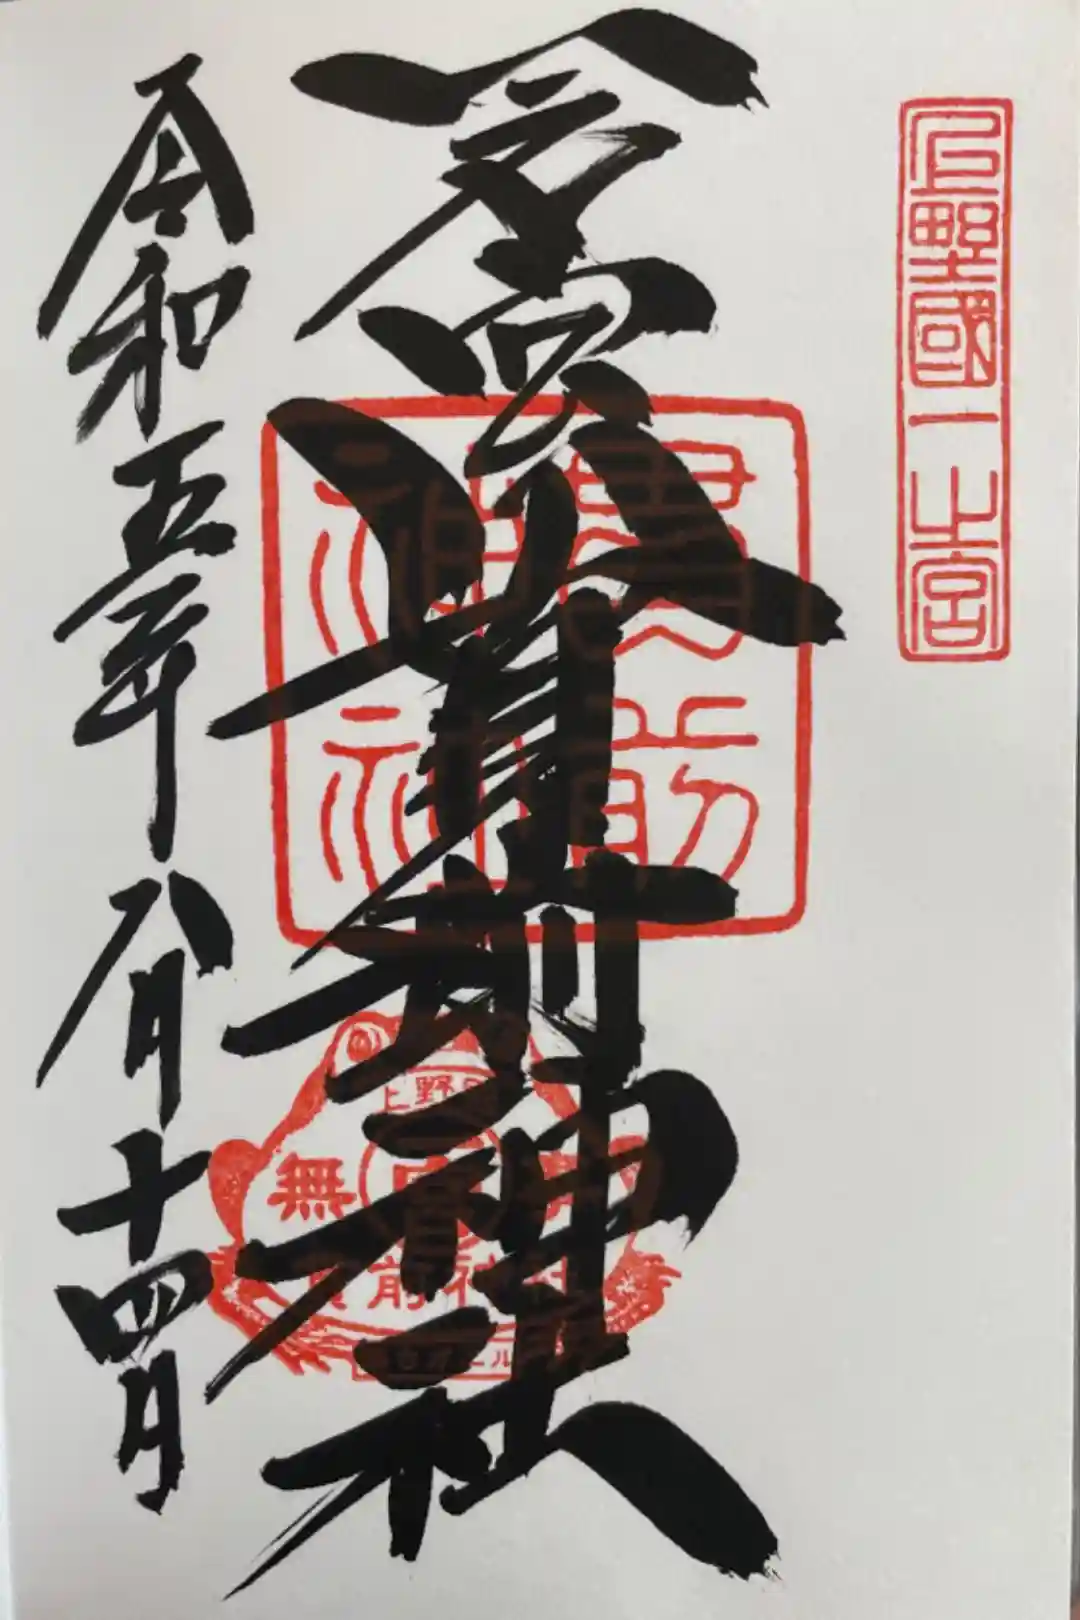 上野國一之宮
一之宮貫前神社
貫前
神社
上野
無
宮
貫前神社
令和五年八月十四日